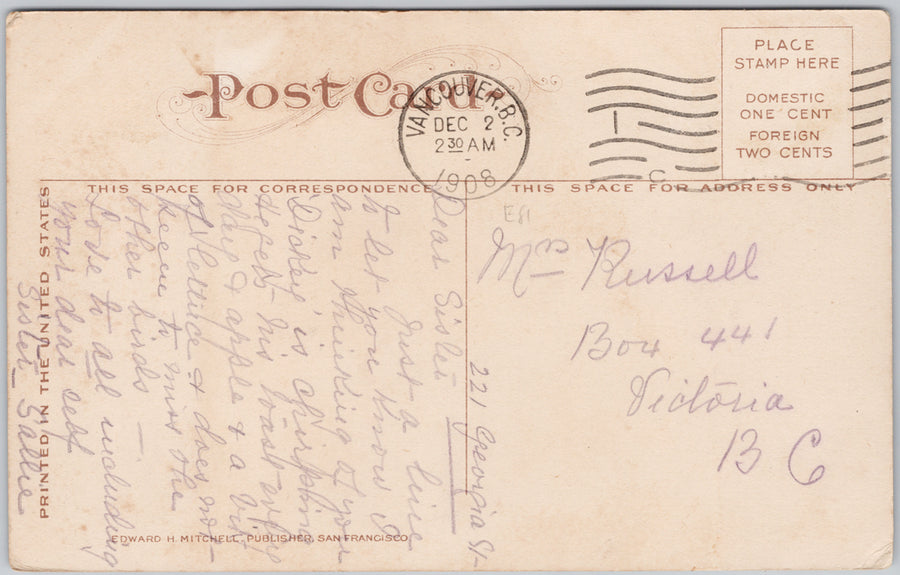 Post Card
VANCOUVER, B.C.
DEC 2
2 30 AM
1908
PLACE
STAMP HERE
DOMESTIC
ONE CENT
FOREIGN
TWO CENTS
THIS SPACE FOR CORRESPONDENCE
THIS SPACE FOR ADDRESS ONLY
PRINTED IN THE UNITED STATES
E81
221 Georgia St
Dear Sister
Just a line
to let you know I
am thinking of you
"Dickey" is chirping
his toast every
day & apple & a bit
of lettuce & does not
seem to miss the
other birds —
Love to all including
your dear self
Sister Sallie
Mrs Russell
Box 441
Victoria
B C
EDWARD H. MITCHELL, PUBLISHER, SAN FRANCISCO